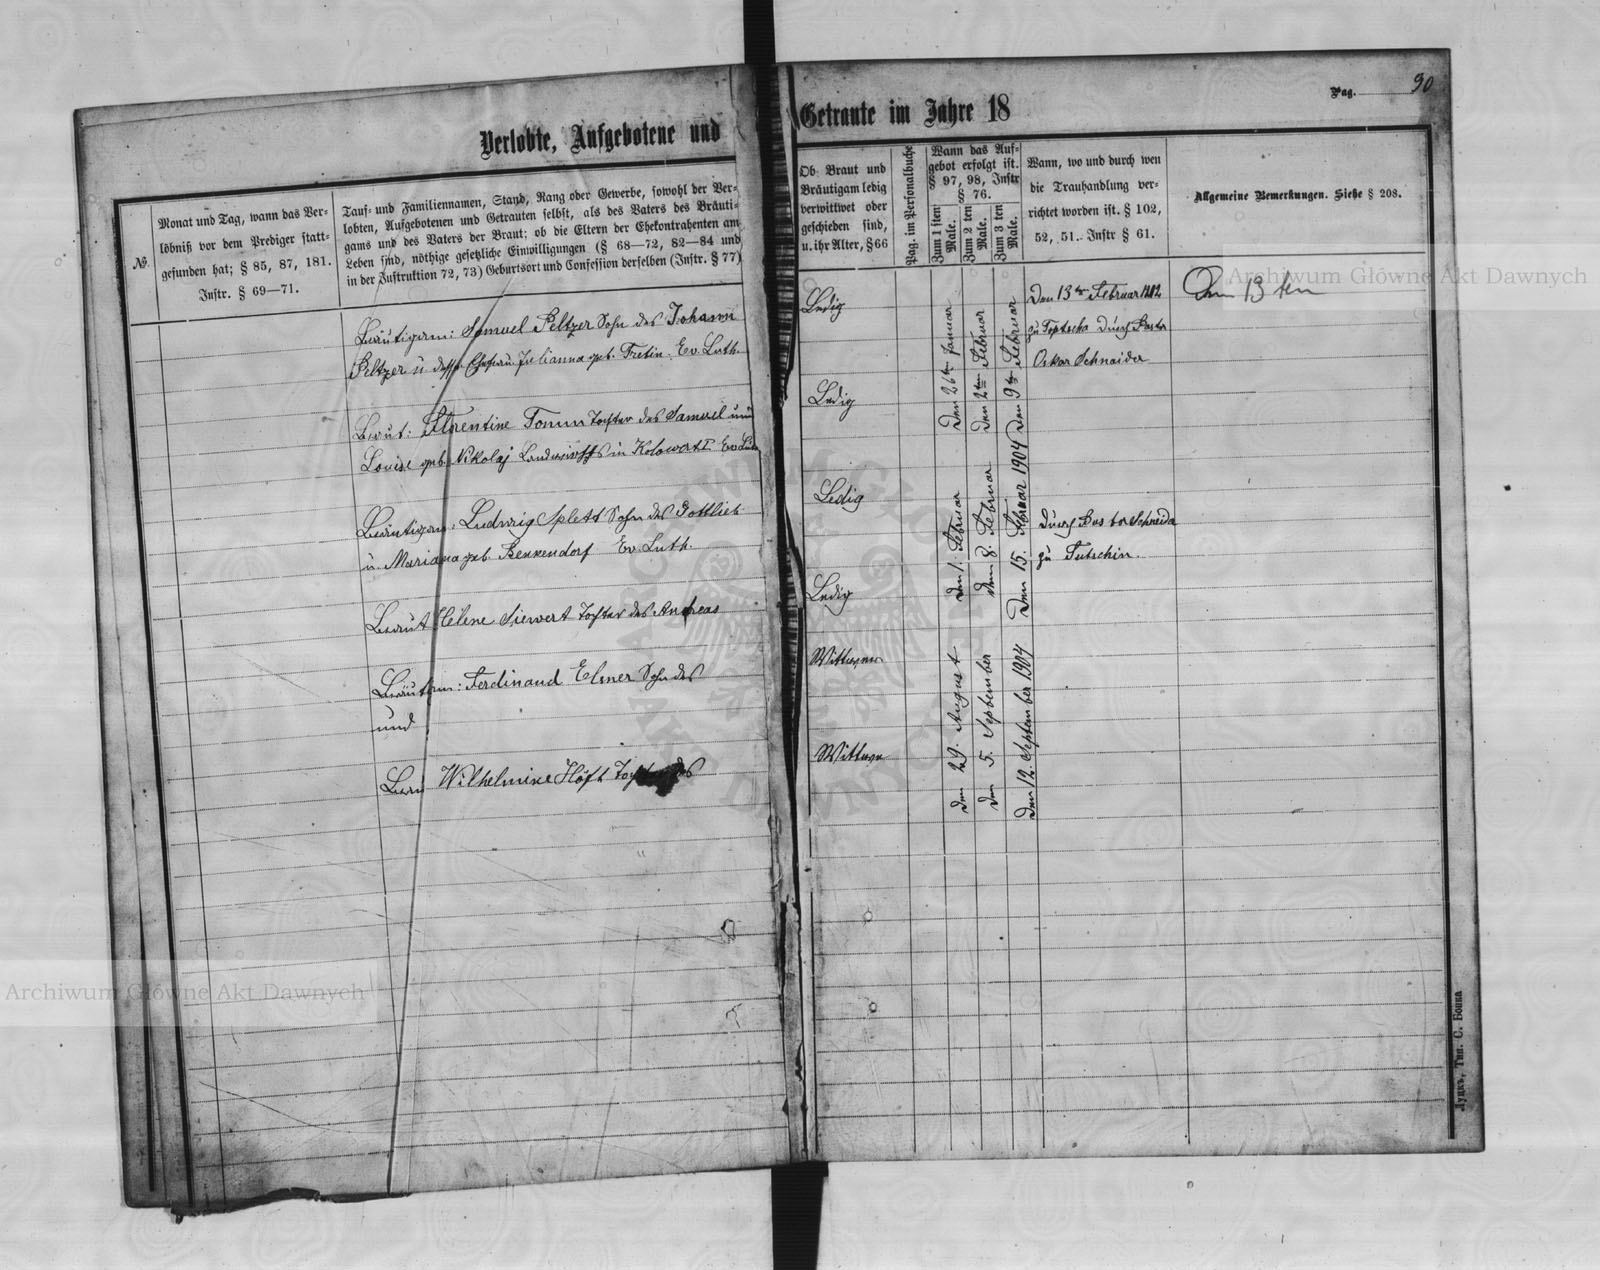 Verlobte, Aufgebotene und
№
Monat und Tag, wann das Ver-
löbniß vor dem Prediger statt-
gefunden hat; § 85, 87, 181.
Instr. § 69—71.
Tauf- und Familiennamen, Stand, Rang oder Gewerbe, sowohl der Ver-
lobten, Aufgebotenen und Getrauten selbst, als des Vaters des Bräuti-
gams und des Vaters der Braut; ob die Eltern der Ehekontrahenten am
Leben sind, nöthige gesetzliche Einwilligungen (§ 68—72, 82—84 und
in der Instruktion 72, 73) Geburtsort und Confession derselben (Instr. § 77)
Bräutigam: Samuel Peltzer Sohn des Johann
Peltzer u dess Ehefrau Julianna geb. Tretin. Ev. Luth.
Braut: Florentine Tomm Tochter des Samuel und
Louise geb. Nikolaj Landwirths in Kolowart I Ev Luth
Bräutigam: Ludwig Splett Sohn des Gottlieb
u. Mariana geb. Benkendorf Ev. Luth.
Braut Helene Siewert Tochter des Andreas
Bräutigam: Ferdinand Elmer Sohn des
und
Wilhelmine Höft Tochter des
Getraute im Jahre 18
Pag. 90
Ob Braut und
Bräutigam ledig
verwittwet oder
geschieden sind,
u. ihr Alter, § 66
Pag. im Personalbuche
Wann das Auf-
gebot erfolgt ist.
§ 97, 98, Instr
§ 76.
Zum 1 sten Male.
Zum 2 ten Male.
Zum 3 ten Male.
Wann, wo und durch wen
die Trauhandlung ver-
richtet worden ist. § 102,
52, 51. Instr § 61.
Allgemeine Bemerkungen. Siehe § 208.
Ledig
Ledig
Ledig
Ledig
Wittwer
Wittwe
Den 26ten Januar
Den 2ten Februar
Den 9ten Februar
Den 1. Februar
Den 8. Februar
Den 15. Februar 1904
Den 29. August
Den 5. September
Den 12. September 1904
Den 13ten Februar
zu Toptscha durch Pastor
Oskar Schneider
Durch Pastor Schneider
zu Tutschin.
Den 13 ten
Луцкъ, Тип. С. Бонка
Archiwum Główne Akt Dawnych
Archiwum Główne Akt Dawnych